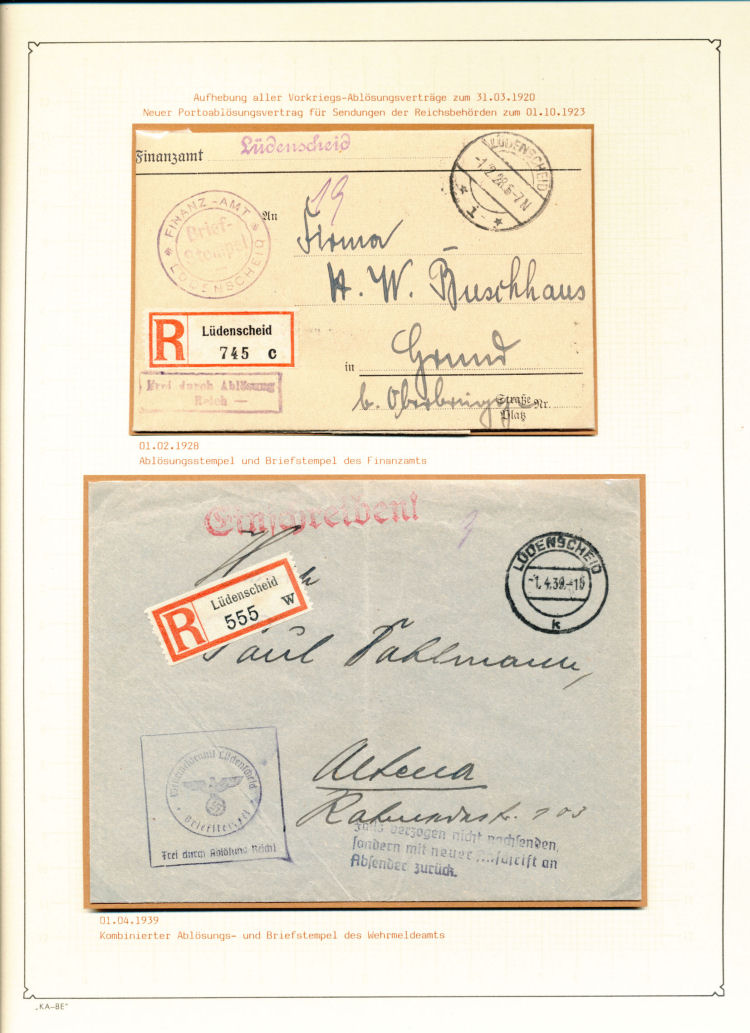 Aufhebung aller Vorkriegs-Ablösungsverträge zum 31.03.1920
Neuer Portoablösungsvertrag für Sendungen der Reichsbehörden zum 01.10.1923
Finanzamt Lüdenscheid
LÜDENSCHEID
-1.2.28.6-7N
* I *
19
FINANZ-AMT
Brief-
Stempel
LÜDENSCHEID
An
Firma
H. W. Buschhaus
R
Lüdenscheid
745 c
in Grund
Frei durch Ablösung
Reich —
b. Oberbrügge
Straße Nr.
Platz
01.02.1928
Ablösungsstempel und Briefstempel des Finanzamts
Einschreiben!
LÜDENSCHEID
-1.4.39.-18
k
R
Lüdenscheid
555 w
Paul Fahlmann,
Wehrmeldeamt Lüdenscheid
Briefstempel
Frei durch Ablösung Reich!
Altena
Rahmedestr. 103
Falls verzogen nicht nachsenden,
sondern mit neuer Anschrift an
Absender zurück.
01.04.1939
Kombinierter Ablösungs- und Briefstempel des Wehrmeldeamts
„KA-BE"